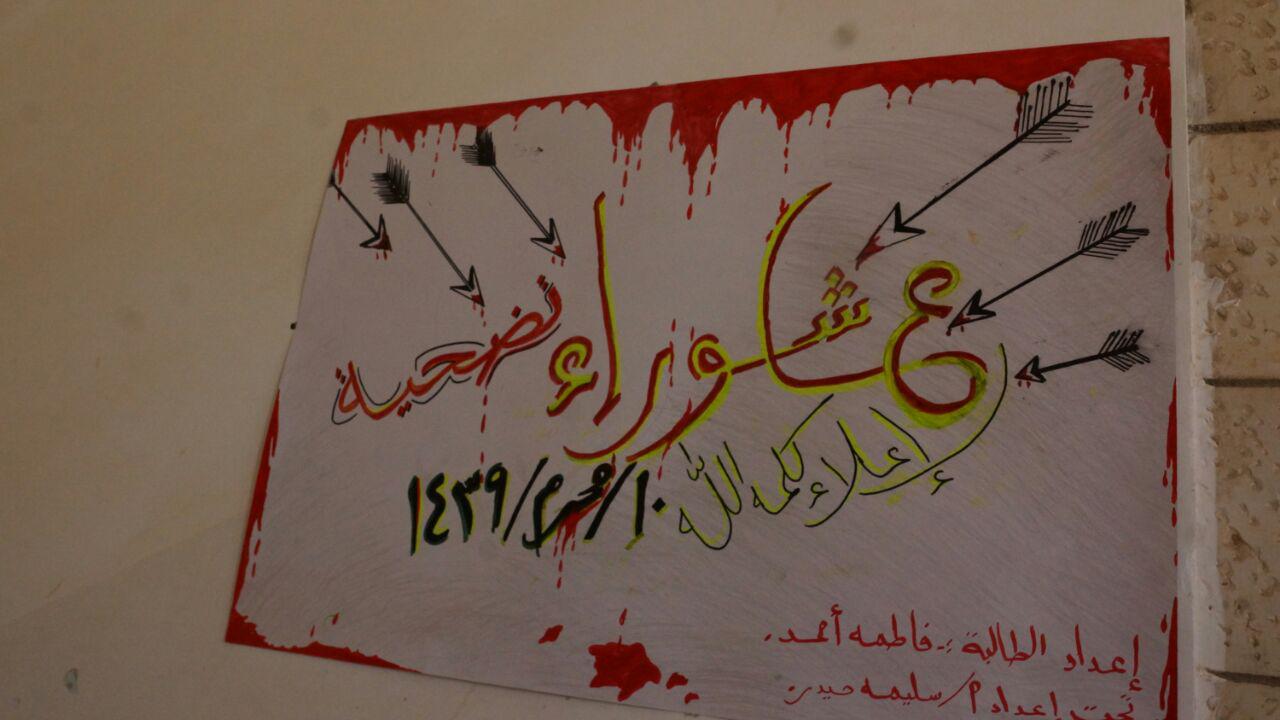 عاشوراء تضحية
إعلاء كلمه الله
١٠/محرم/١٤٣٩
إعداد الطالبة :- فاطمه أحمد.
تحت إعداد م/سليمه حيدر